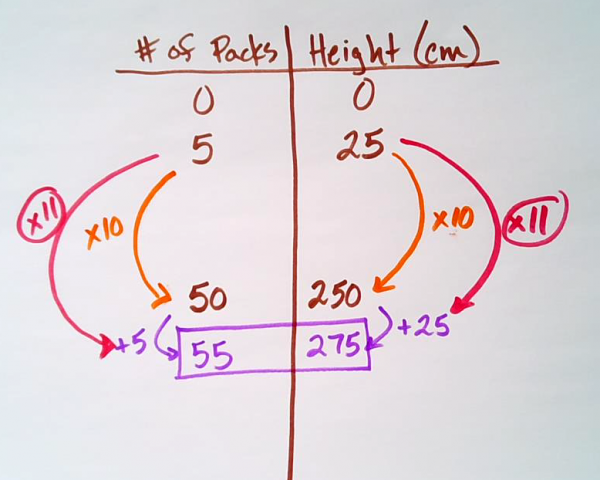 # of Packs Height (cm)
0 0
5 25
x11 x10 x10 x11
50 250
+5 55 275 +25